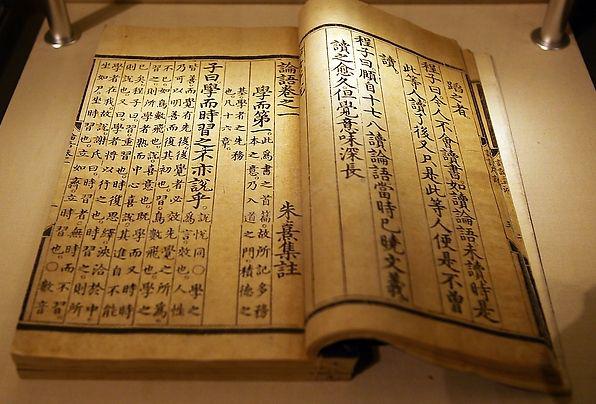 蹈之者
程子曰今人不會讀書如讀論語未讀時是
此等人讀了後又只是此等人便是不曾
讀
程子曰頤自十七八讀論語當時已曉文義
讀之愈久但覺意味深長
論語卷之一 朱熹集註
學而第一 此爲書之首篇故所記多務
本之意乃入道之門積德之
基學者之先務
也凡十六章
子曰學而時習之不亦說乎 說悅同○學之
爲言效也人性
皆善而覺有先後後覺者必效先覺之所爲
乃可以明善而復其初也習鳥數飛也學之
不已如鳥數飛也說喜意也既學而又時時
習之則所學者熟而中心喜說其進自不能
已矣程子曰習重習也時復思繹浹洽於中
則說也又曰學者將以行之也時習之則所
學者在我故說謝氏曰時習者無時而不習
坐如尸坐時習也立如齊立時習也○數音